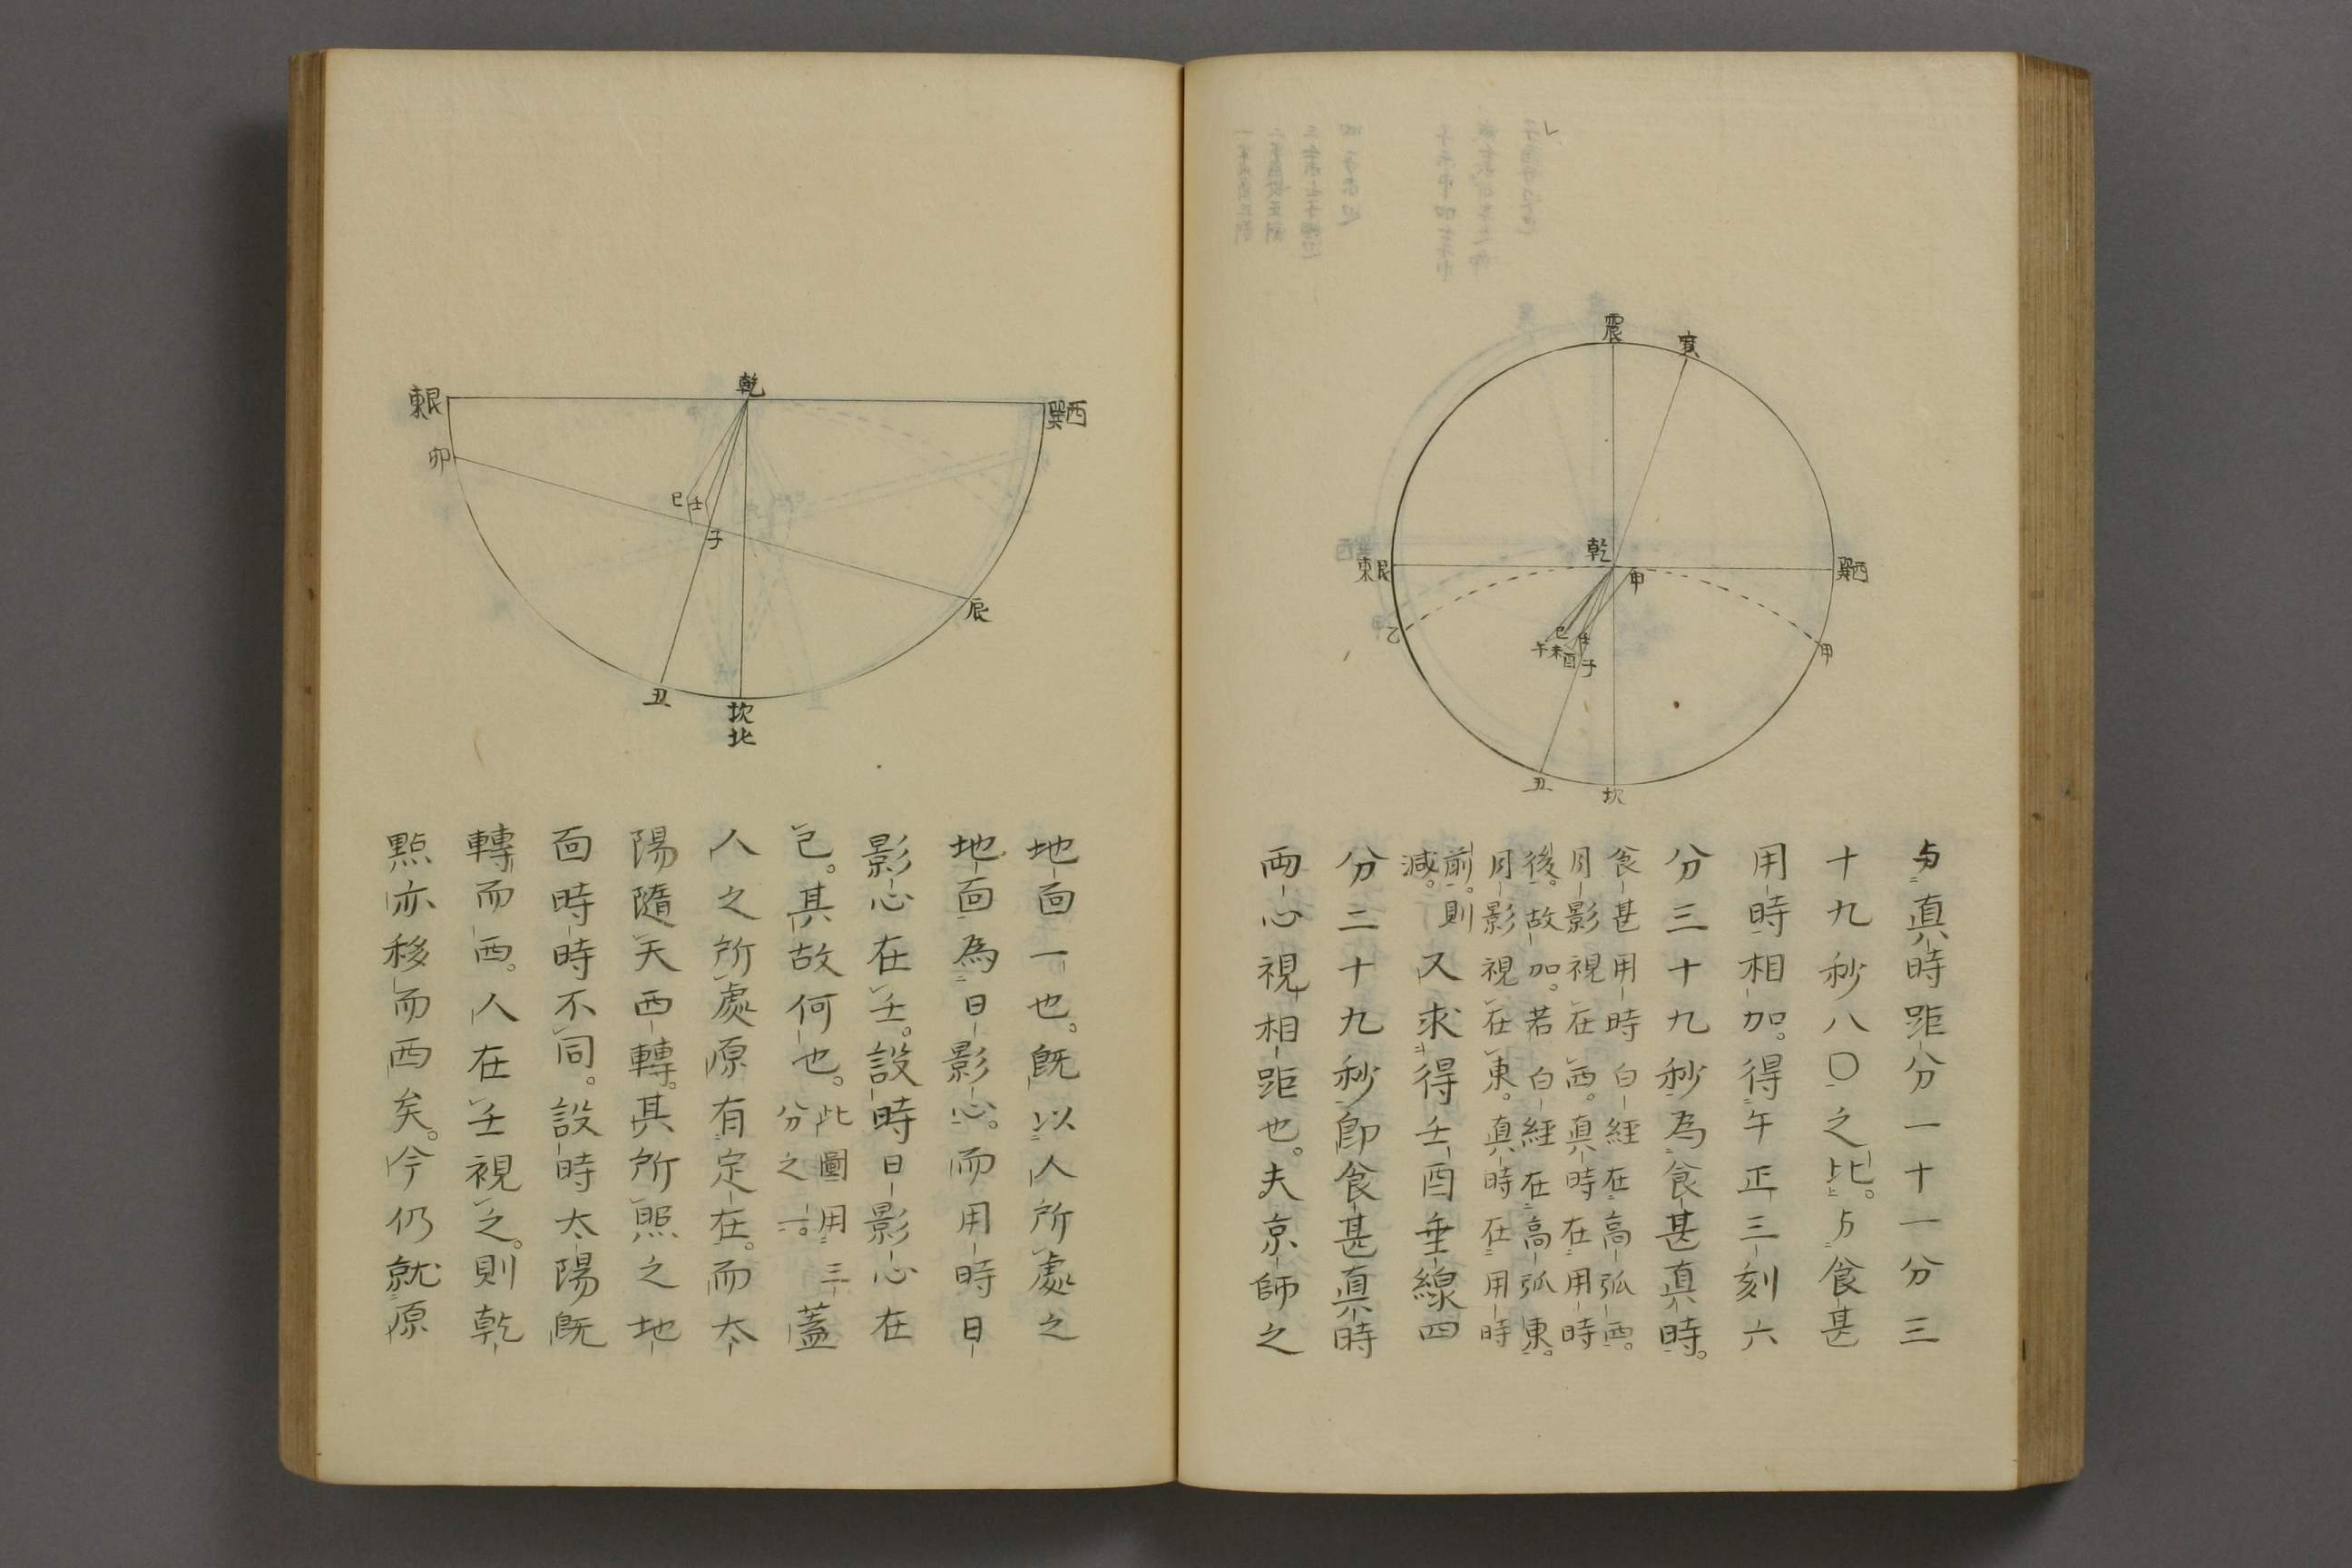 震
寅
乾
甲
東艮
巽西
乙
甲
巳
壬
午未酉子
丑
坎
与真時距分一十一分三
十九秒八〇之比。与食甚
用時相加。得午正三刻六
分三十九秒為食甚真時。
食甚用時白經在高弧西。
月影視在西。真時在用時
後。故加。若白經在高弧東。
月影視在東。真時在用時
前。則
減。又求得壬酉垂線四
分二十九秒即食甚真時
両心視相距也。夫京師之
乾
東艮
巽西
卯
巳壬
子
辰
丑
坎
北
地面一也。既以人所處之
地面為日影心。而用時日
影心在壬。設時日影心在
己。其故何也。
此圖用三
分之一。
蓋
人之所處原有定在。而太
陽隨天西轉。其所照之地
面時時不同。設時太陽既
轉而西。人在壬視之。則乾
點亦移而西矣。今仍就原